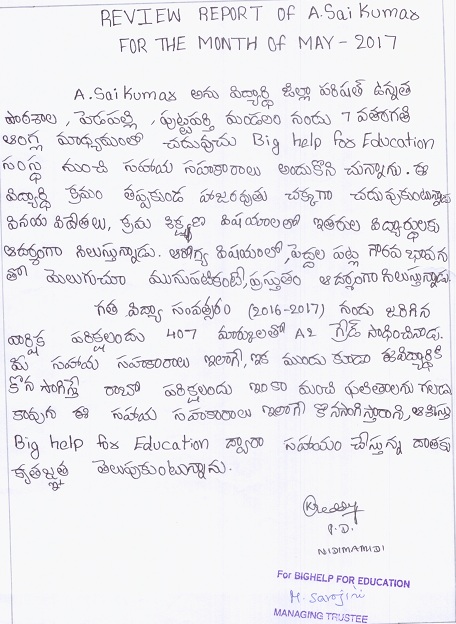 REVIEW REPORT OF A.Sai Kumar
FOR THE MONTH OF MAY - 2017
A.Sai Kumar అను విద్యార్థి జిల్లా పరిషత్ ఉన్నత
పాఠశాల, పెడపల్లి, పుట్టపర్తి మండలం నందు 7 వతరగతి
ఆంగ్ల మాధ్యమంలో చదువుచు Big help for Education
సంస్థ నుంచి సహాయ సహకారాలు అందుకొని చున్నాడు. ఈ
విద్యార్థి క్రమం తప్పకుండ హాజరవుతు చక్కగా చదువుకుంటున్నాడు
వినయ విధేతలు, క్రమ శిక్షణ విషయాలలో ఇతరుల విద్యార్థులకు
ఆదర్శంగా నిలుస్తున్నాడు. ఆరోగ్య విషయంలో, పెద్దల పట్ల గౌరవ భావన
తో మెలుగుచూ మునుపటికంటే, ప్రస్తుతం ఆదర్శంగా నిలుస్తున్నాడు.
గత విద్యా సంవత్సరం (2016-2017) నందు జరిగిన
వార్షిక పరిక్షలందు 407 మార్కులతో A2 గ్రేడ్ సాధించినాడు.
మీ సహాయ సహకారాలు ఇలాగే, ఇక ముందు కూడా ఈవిద్యార్థికి
కొన సాగిస్తే రాబో పరిక్షలందు ఇంకా మంచి ఫలితాలగు గలడు
కావున ఈ సహాయ సహకారాలు ఇలాగే కొనసాగిస్తారాని, ఆశిస్తు
Big help for Education ద్వారా సహాయం చేస్తున్న దాతకు
కృతజ్ఞత తెలుపుకుంటున్నాను.
KReddy
P.D.
NIDIMAMIDI
For BIGHELP FOR EDUCATION
M. Sarojini
MANAGING TRUSTEE